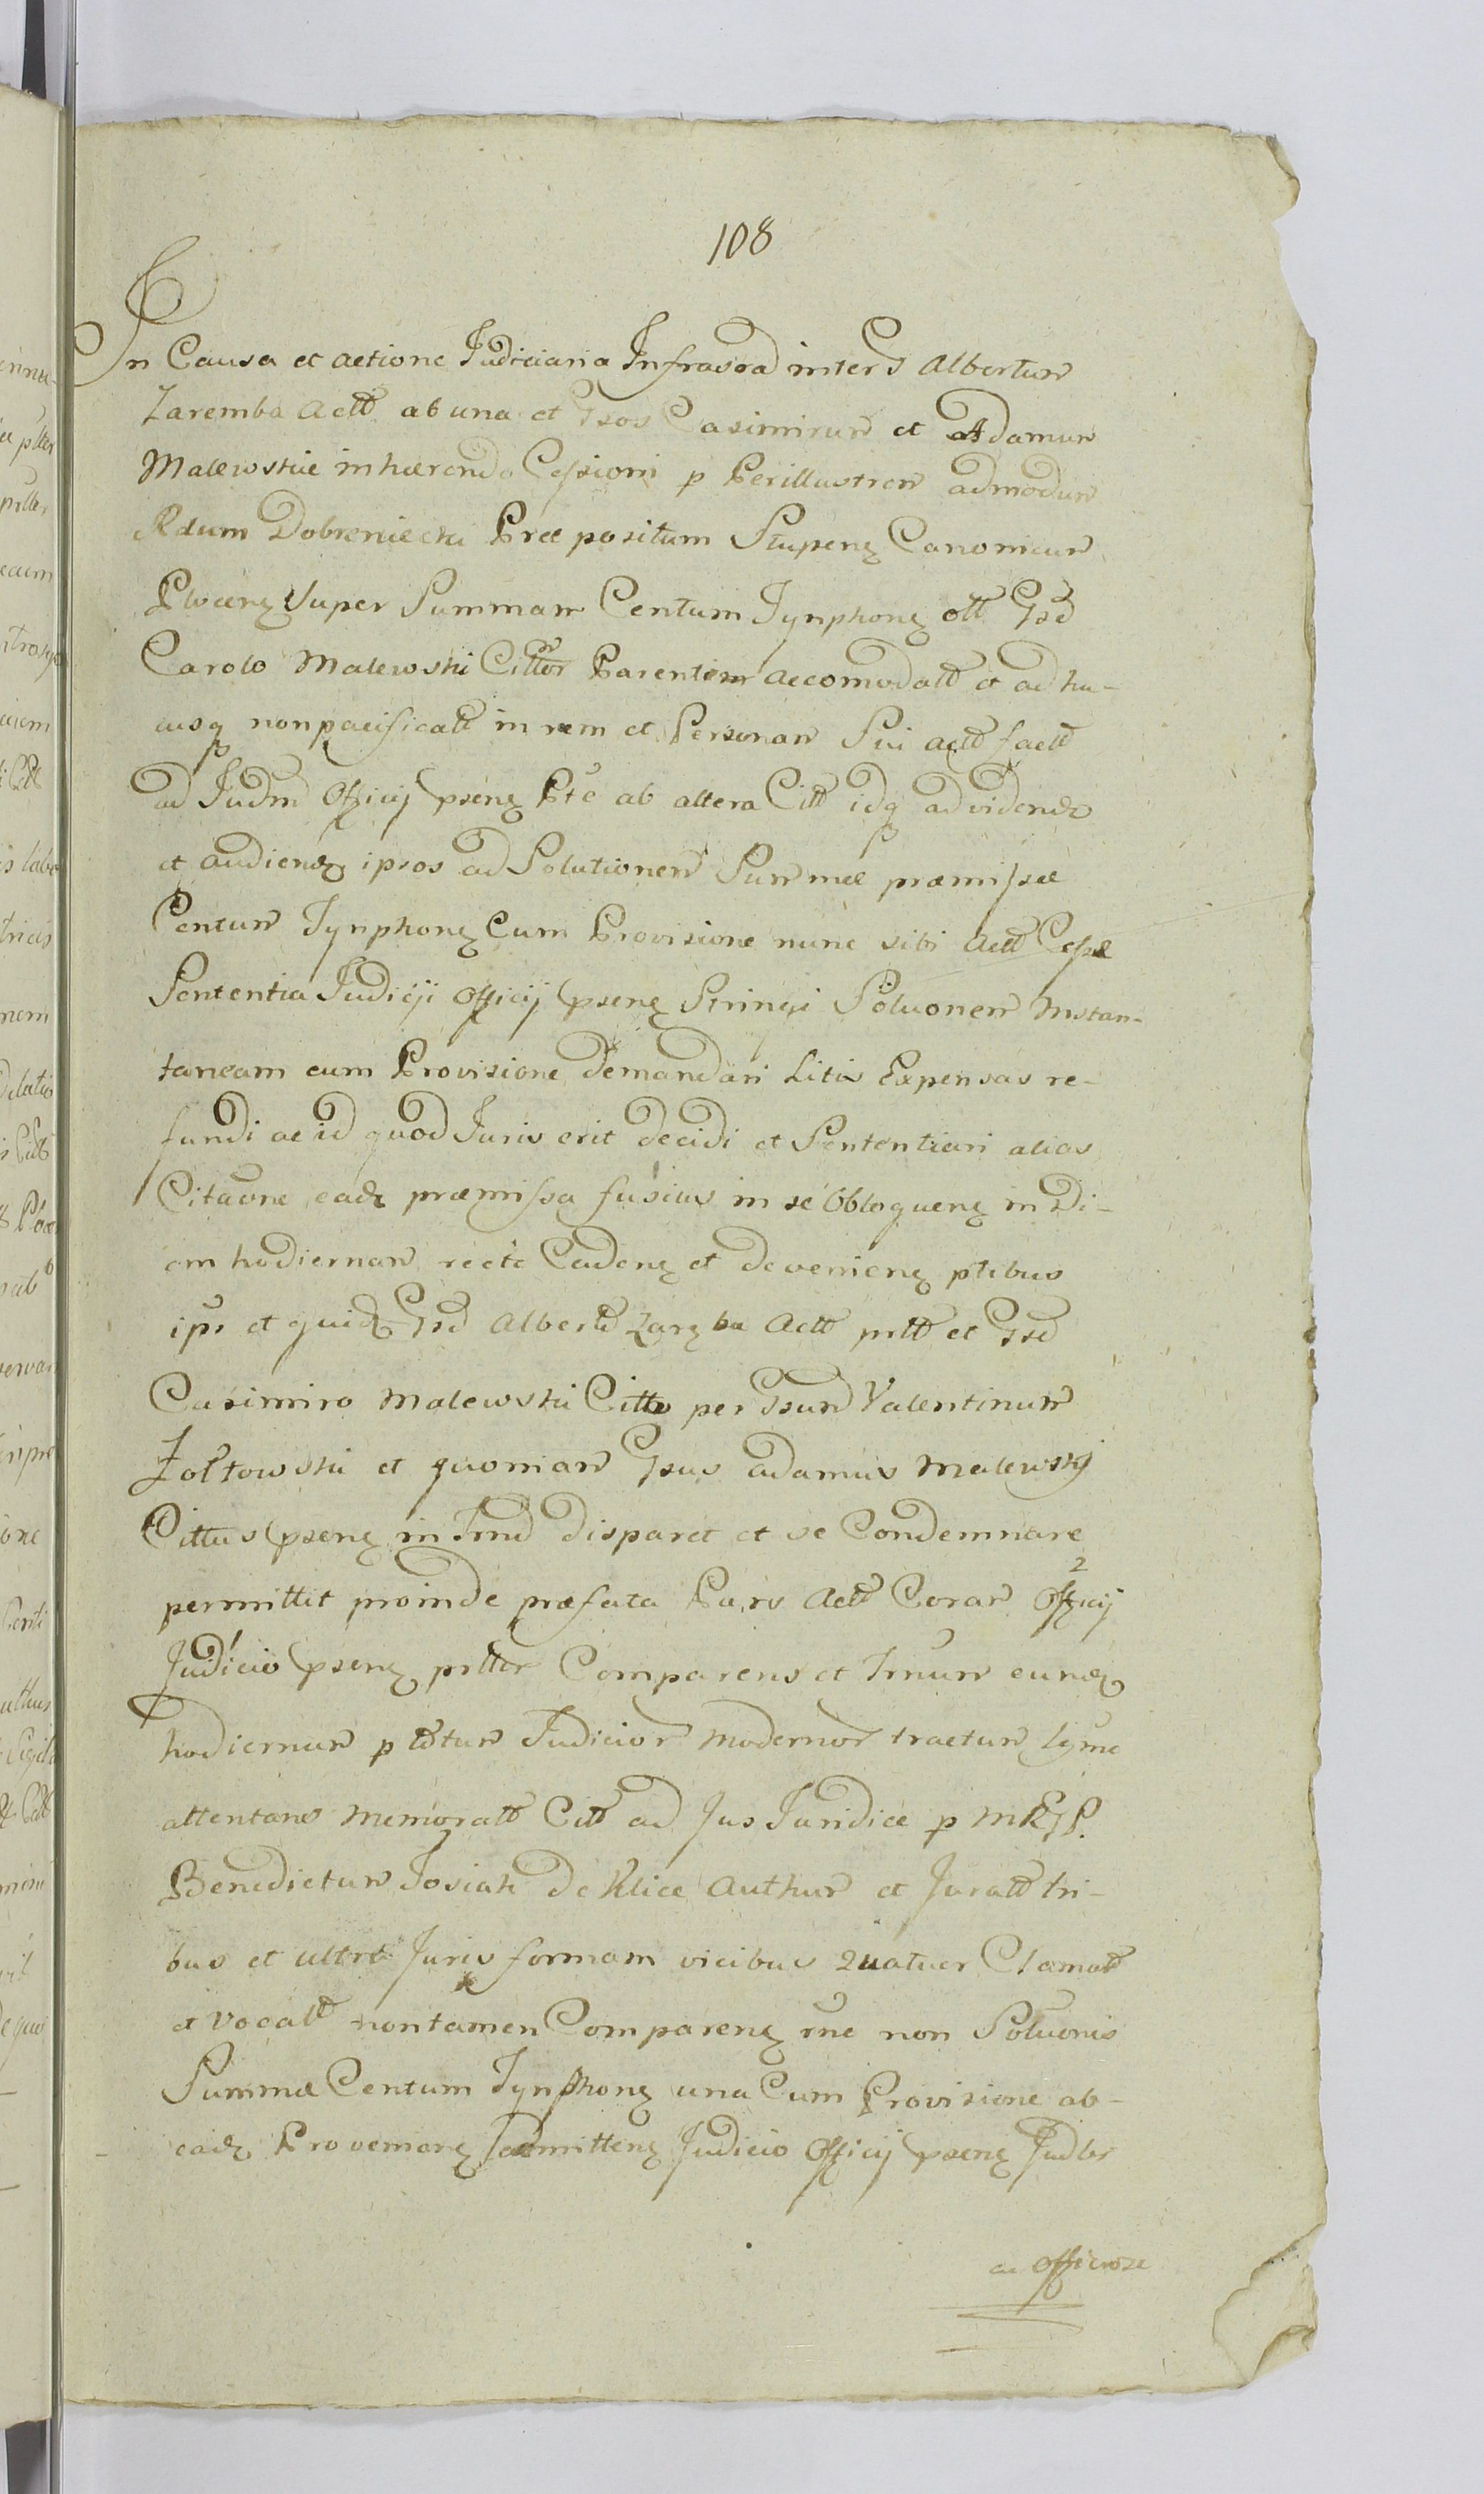 108
In Causa et actione Judiciaria Infrascrã inter G Albertum
Zaremba Actt ab una et Gsos Casimirum et Adamum
Malewskie inhærendo Cessioni p Perillustrem admodum
Rdum Dobreniecki Præpositum Stupeng Canonicum
Ploceng Super Summam Centum Tynphong ott Gsd
Carolo Malewski Cittor Parentem accomodatt et adhu-
cusq non pacificatt in rem et Personam Sui Actt factt
ad Judm Officij pseng Pte ab altera Citt idq ad videndo
et audiendg ipsos ad Solutionem Summæ præmissæ
Centum Tynphong Cum Provisione nunc sibi Actt Cessæ
Sententia Judicij Officij pseng Stringi Soluonem Instan-
taneam cum Provisione demandari Litis Expensas re-
fundi ac id quod Juris erit decidi et Sententiari alias
Citaõne eadg præmissa fusius in se Obloqueng in Di-
em hodiernam recte Cadeng et devenieng ptibus
ips et quidg Gsd Alberto Zargba Actt prtt et Gsd
Casimiro Malewski Citto per Gsum Valentinum
Żołtowski et quoniam Gsus Adamus Malewskj
Cittus pseng in Tnno disparet et se Condemnare
permittit proinde præfata Pars Actt Coram Officij
Judicio pseng prltter Comparens et Tnnum eundg
hodiernum p totum Judicior modernor tractum lgme
attentans memoratt Citt ad Jus Juridice p M
Benedictum Josiak de Klice Authum et Juratt tri-
bus et ultra Juris formam vicibus Quatuer Clamatt
et vocatt non tamen Compareng rne non Soluonis
Summæ Centum Tynphong una Cum Provisione ab-
eadg Provenieng admitteng Judicio Officij pseng Judtr
ac Officiose